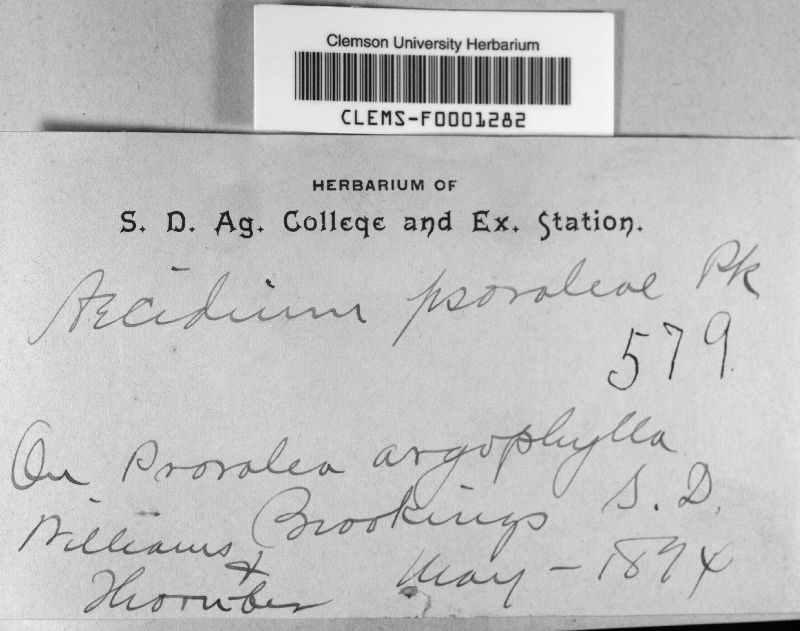 Clemson University Herbarium
CLEMS-F0001282
HERBARIUM OF
S. D. Ag. College and Ex. Station.
Aecidium psoraleae Pk
579.
On Psoralea argophylla
Brookings S. D.
Williams &
Thornber May - 1894